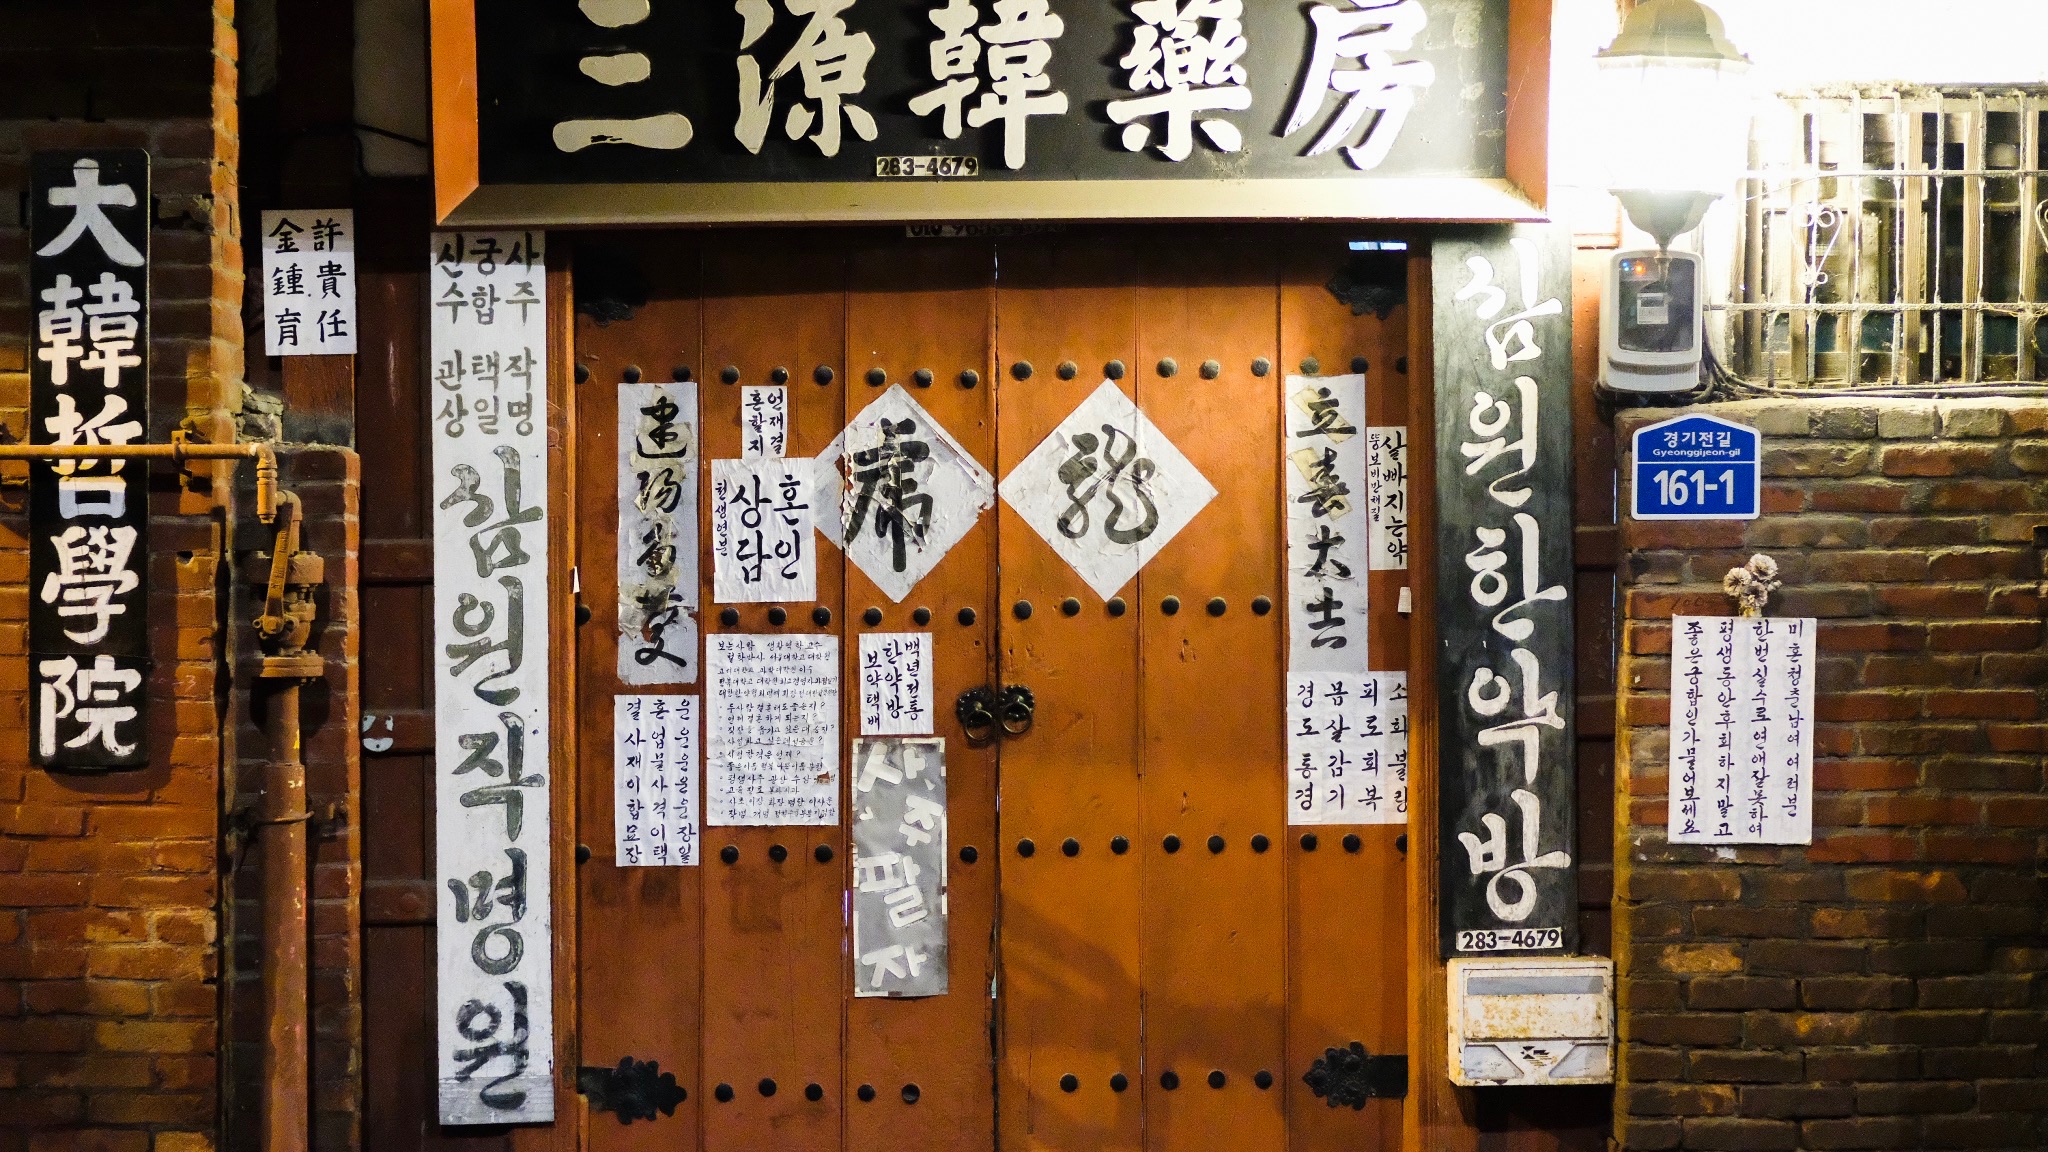 三源韓藥房
283-4679
大韓哲學院
許貴任
金鍾育
사주
궁합
신수
작명
택일
관상
삼원작명원
建陽多慶
언재결
혼할지
혼인
상담
천생연분
虎
龍
立春大吉
살빠지는약
뚱보비만체질
삼원한약방
283-4679
경기전길
Gyeonggijeon-gil
161-1
백년전통
한약방
보약택배
사주팔자
운운운운운장일
혼업물사격이택
결사재이합묘장
소화불량
피로회복
몸살감기
경도통경
미혼청춘남여 여러분
한번실수로 연애잘못하여
평생동안후회하지말고
좋은궁합인가물어보세요